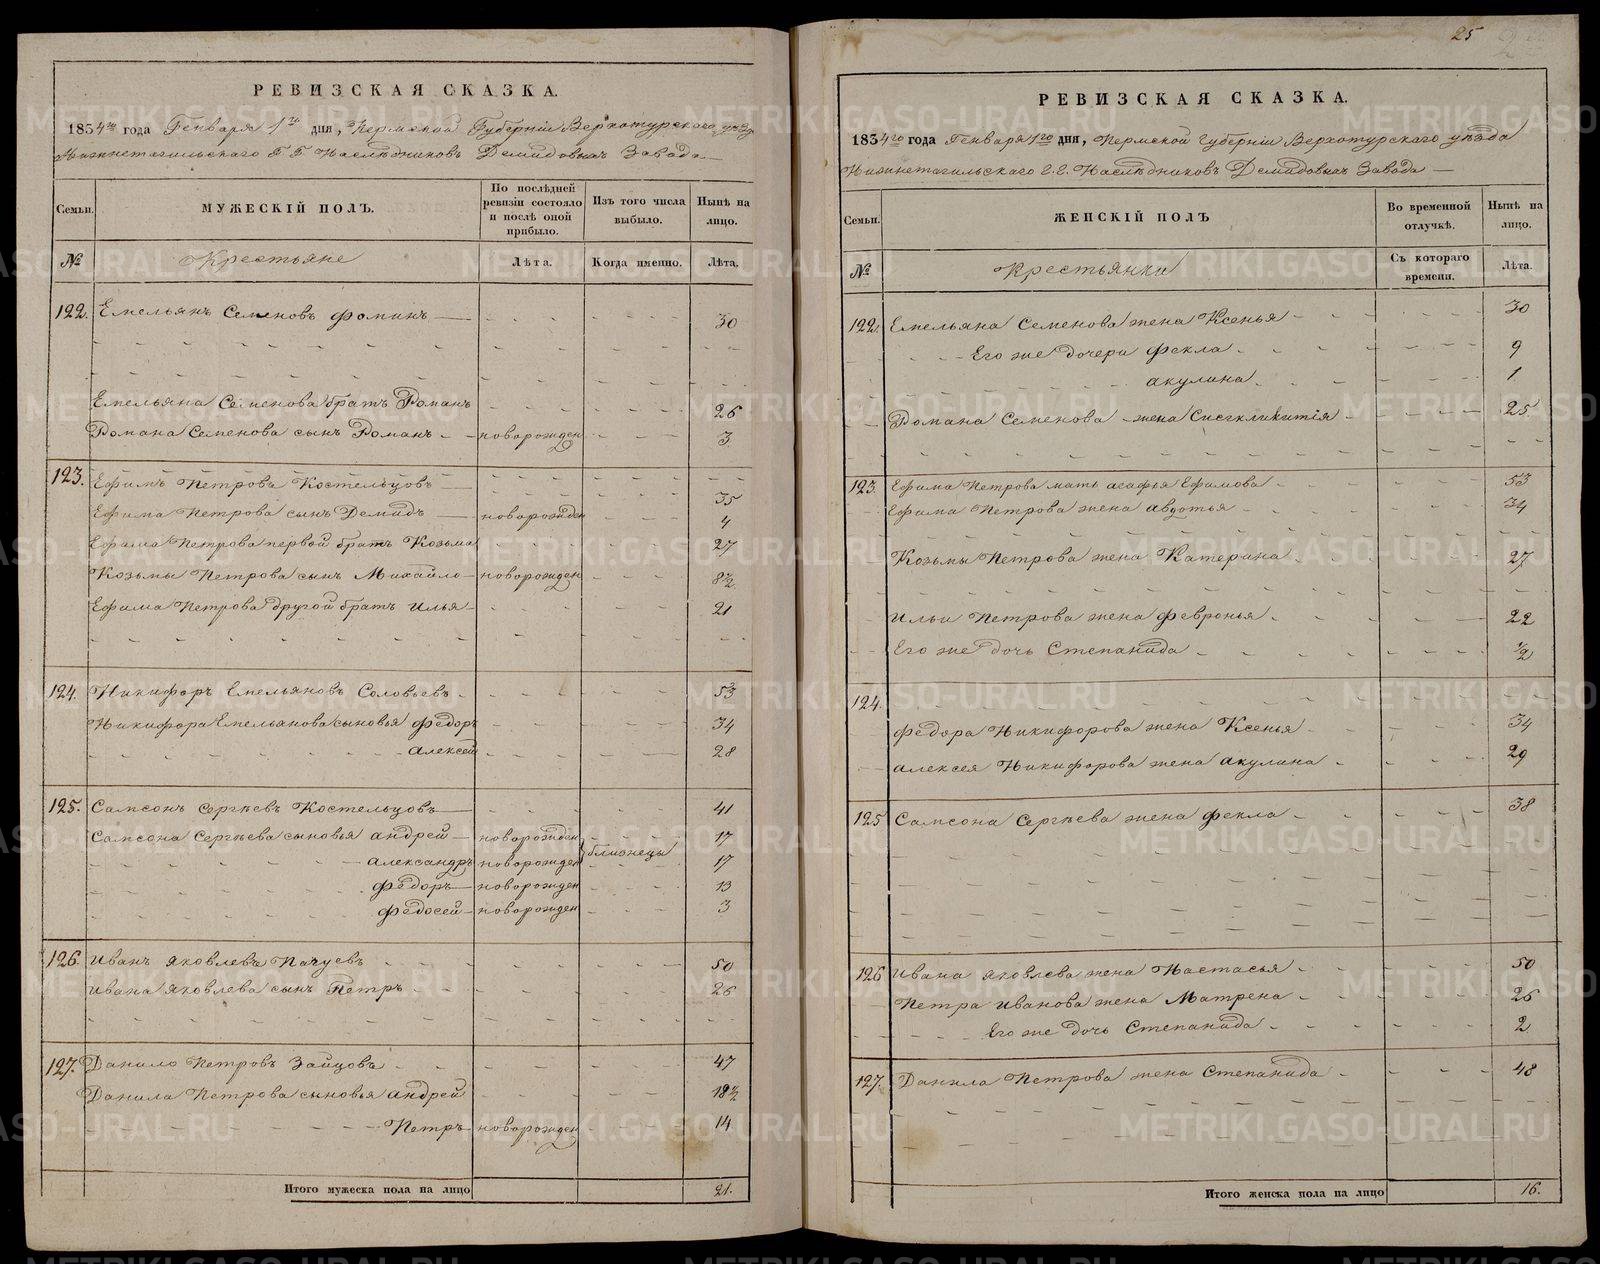 РЕВИЗСКАЯ СКАЗКА.
1834го года Генваря 1го дня, Пермской Губернiи Верхотурскаго уѣзда
Нижнетагильскаго Г. Г. Наслѣдниковъ Демидовыхъ Завода
Семьи. МУЖЕСКIЙ ПОЛЪ. По послѣдней ревизiи состояло и послѣ оной прибыло. Изъ того числа выбыло. Нынѣ на лицо.
№ Крестьяне Лѣта. Когда именно. Лѣта.
122. Емельянъ Семеновъ Фоминъ 30
Емельяна Семенова братъ Романъ 26
Романа Семенова сынъ Романъ новорожден 3
123. Ефимъ Петровъ Костельцовъ 35
Ефима Петрова сынъ Демидъ новорожден 4
Ефима Петрова первой братъ Козьма 27
Козьмы Петрова сынъ Михайло новорожден 8½
Ефима Петрова другой братъ Илья 21
124. Никифоръ Емельяновъ Соловьевъ 53
Никифора Емельянова сыновья Федоръ 34
Алексей 28
125. Самсонъ Сергѣевъ Костельцовъ 41
Самсона Сергѣева сыновья Андрей новорожден 17
близнецы
Александръ новорожден 17
Федоръ новорожден 13
Федосей новорожден 3
126. Иванъ Яковлевъ Пачуевъ 50
Ивана Яковлева сынъ Петръ 26
127. Данило Петровъ Зайцовъ 47
Данила Петрова сыновья Андрей 18½
Петръ новорожден 14
Итого мужеска пола на лицо 21.
25
РЕВИЗСКАЯ СКАЗКА.
1834го года Генваря 1го дня, Пермской Губернiи Верхотурскаго уѣзда
Нижнетагильскаго Г. Г. Наслѣдниковъ Демидовыхъ Завода
Семьи. ЖЕНСКIЙ ПОЛЪ Во временной отлучкѣ. Нынѣ на лицо.
№ Крестьянки Съ котораго времени. Лѣта.
122. Емельяна Семенова жена Ксенья 30
Его же дочери Фекла 9
Акулина 1
Романа Семенова жена 25
123. Ефима Петрова мать Агафья Ефимова 53
Ефима Петрова жена Авдотья 34
Козьмы Петрова жена Катерина 27
Ильи Петрова жена Февронья 22
Его же дочь Степанида ½
124.
Федора Никифорова жена Ксенья 34
Алексея Никифорова жена Акулина 29
125 Самсона Сергѣева жена Фекла 38
126 Ивана Яковлева жена Настасья 50
Петра Иванова жена Матрена 26
Его же дочь Степанида 2
127. Данила Петрова жена Степанида 48
Итого женска пола на лицо 16.
METRIKI.GASO-URAL.RU